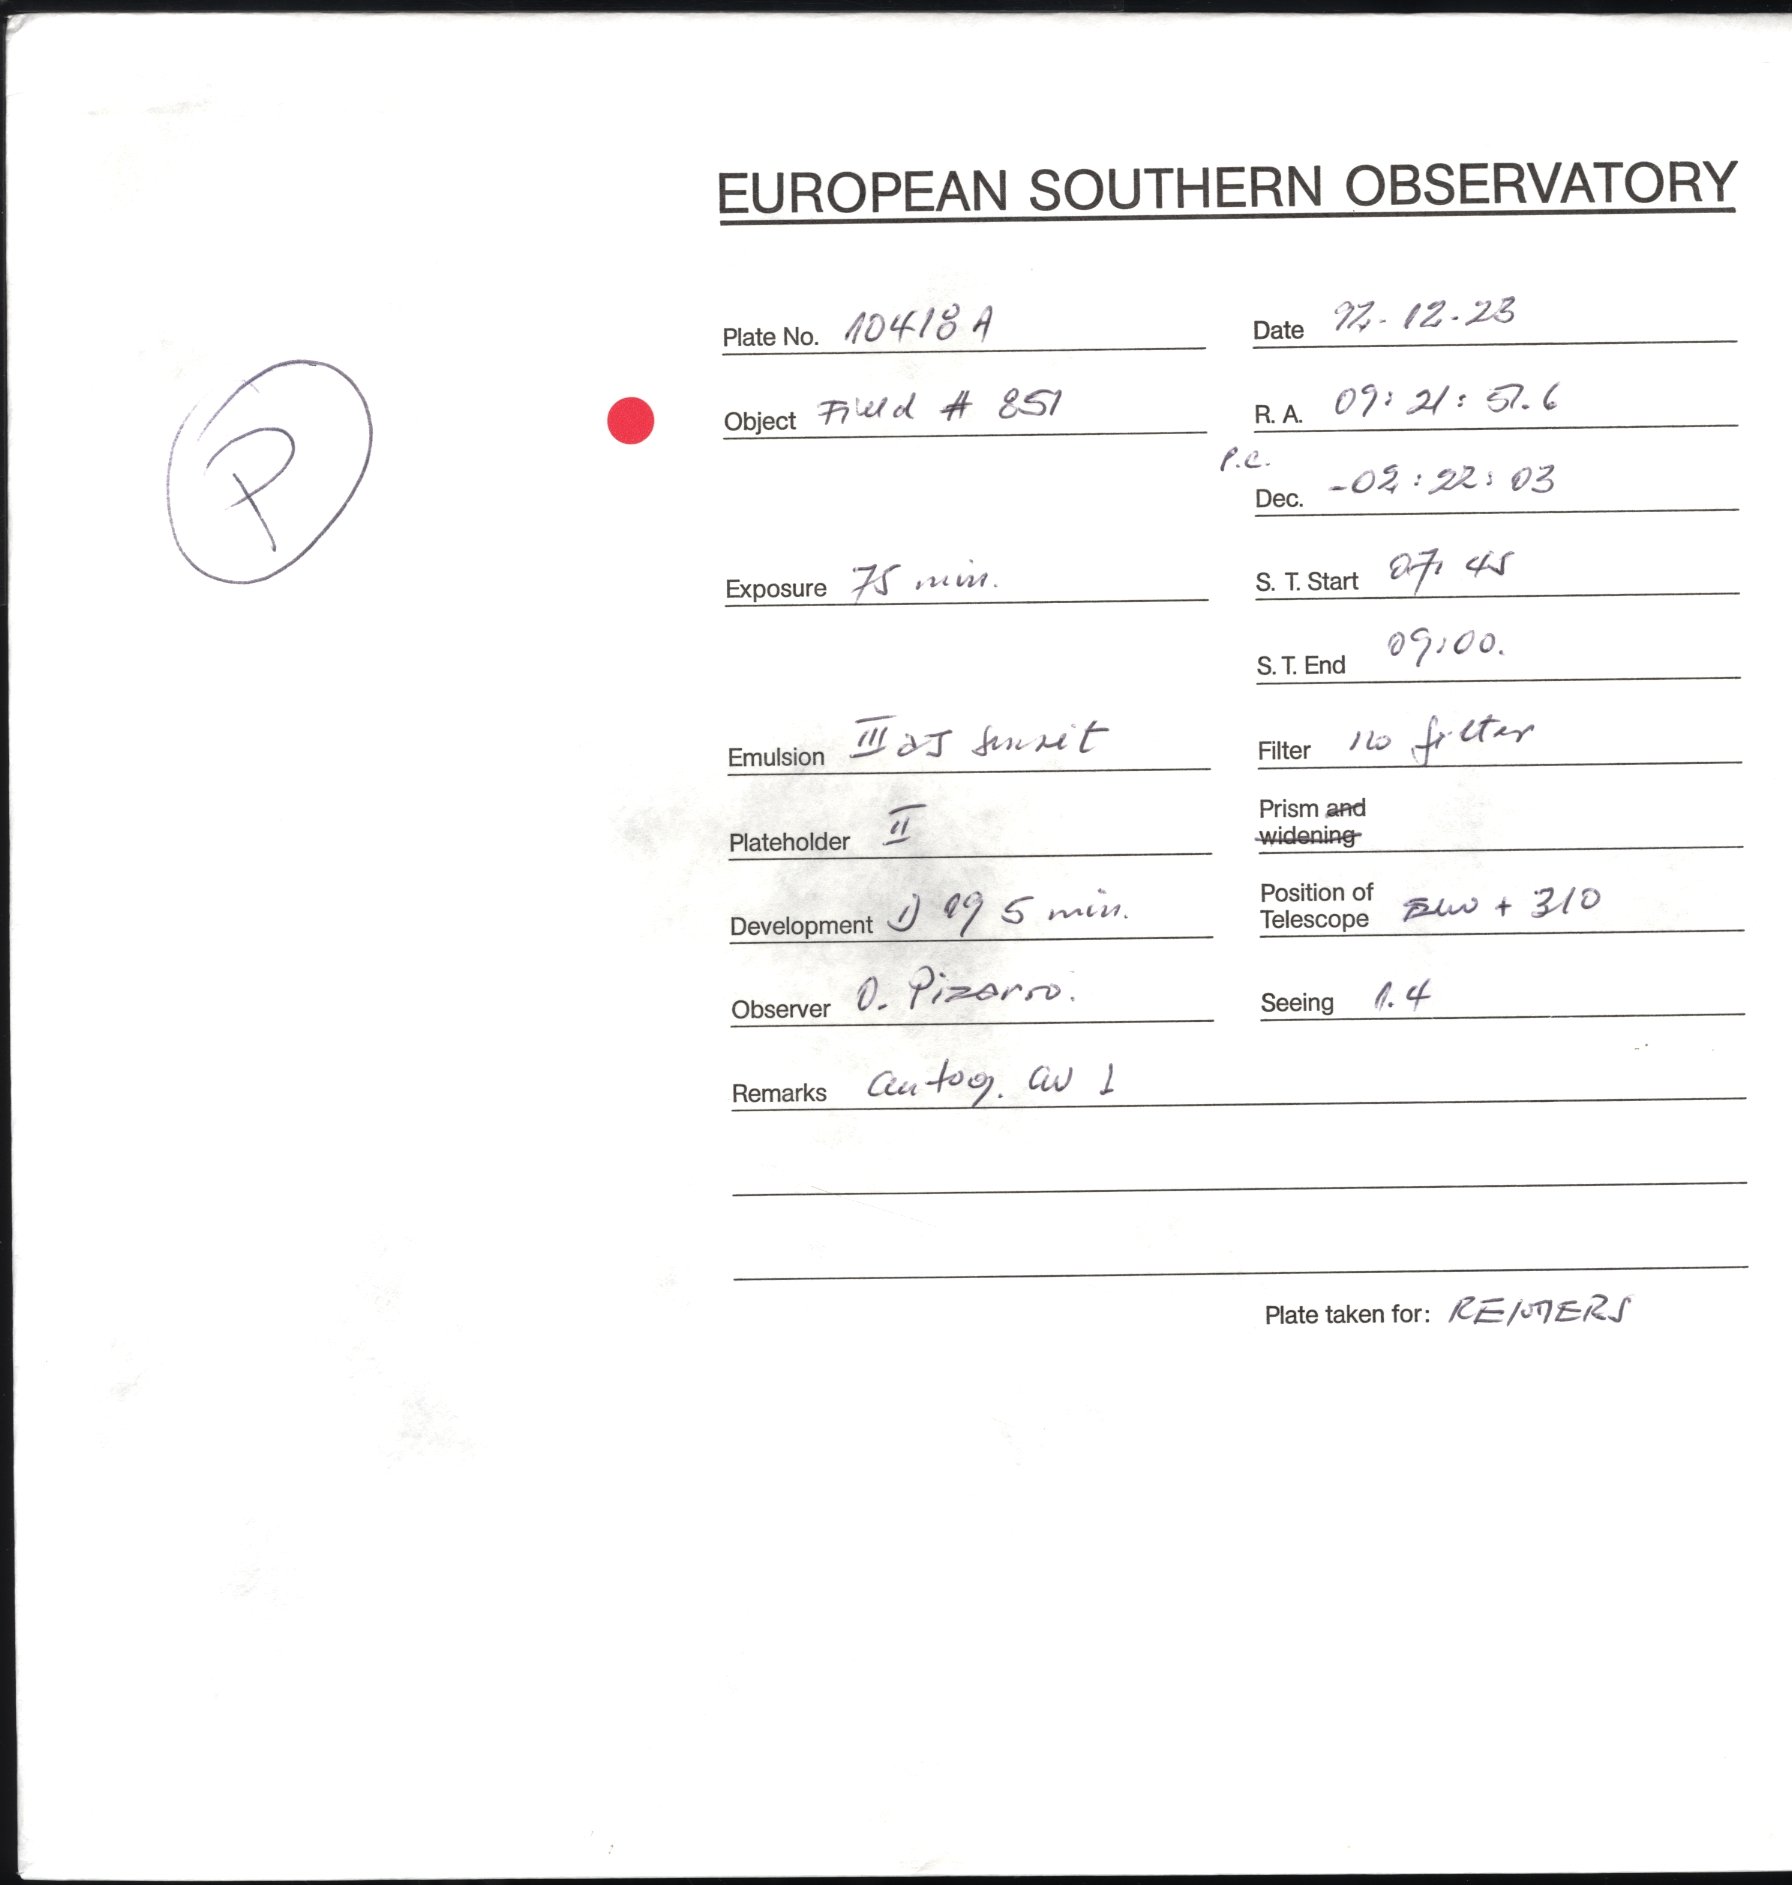 EUROPEAN SOUTHERN OBSERVATORY
Plate No. 10418 A Date 92-12-23
P
Object Field # 851 R. A. 09: 21: 57.6
P.C.
Dec. -02: 22: 03
Exposure 75 min. S. T. Start 07: 45
S. T. End 09:00.
Emulsion III aJ Filter no filter
Plateholder II Prism and widening
Development 1) 19 5 min. Position of Telescope + 310
Observer O. Pizarro. Seeing 1.4
Remarks autog. 1
Plate taken for: REIMERS